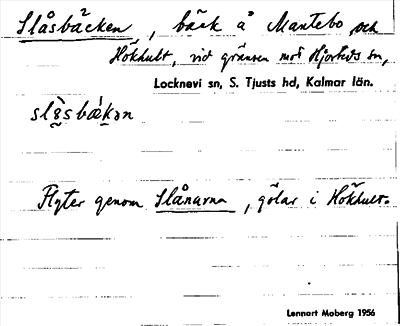 Slåsbäcken, bäck å Mantebo, och
Hökhult, vid gränsen mot Hjorteds sn,
Locknevi sn, S. Tjusts hd, Kalmar län.
Flyter genom Slånarna, gölar i Hökhult.
Lennart Moberg 1956